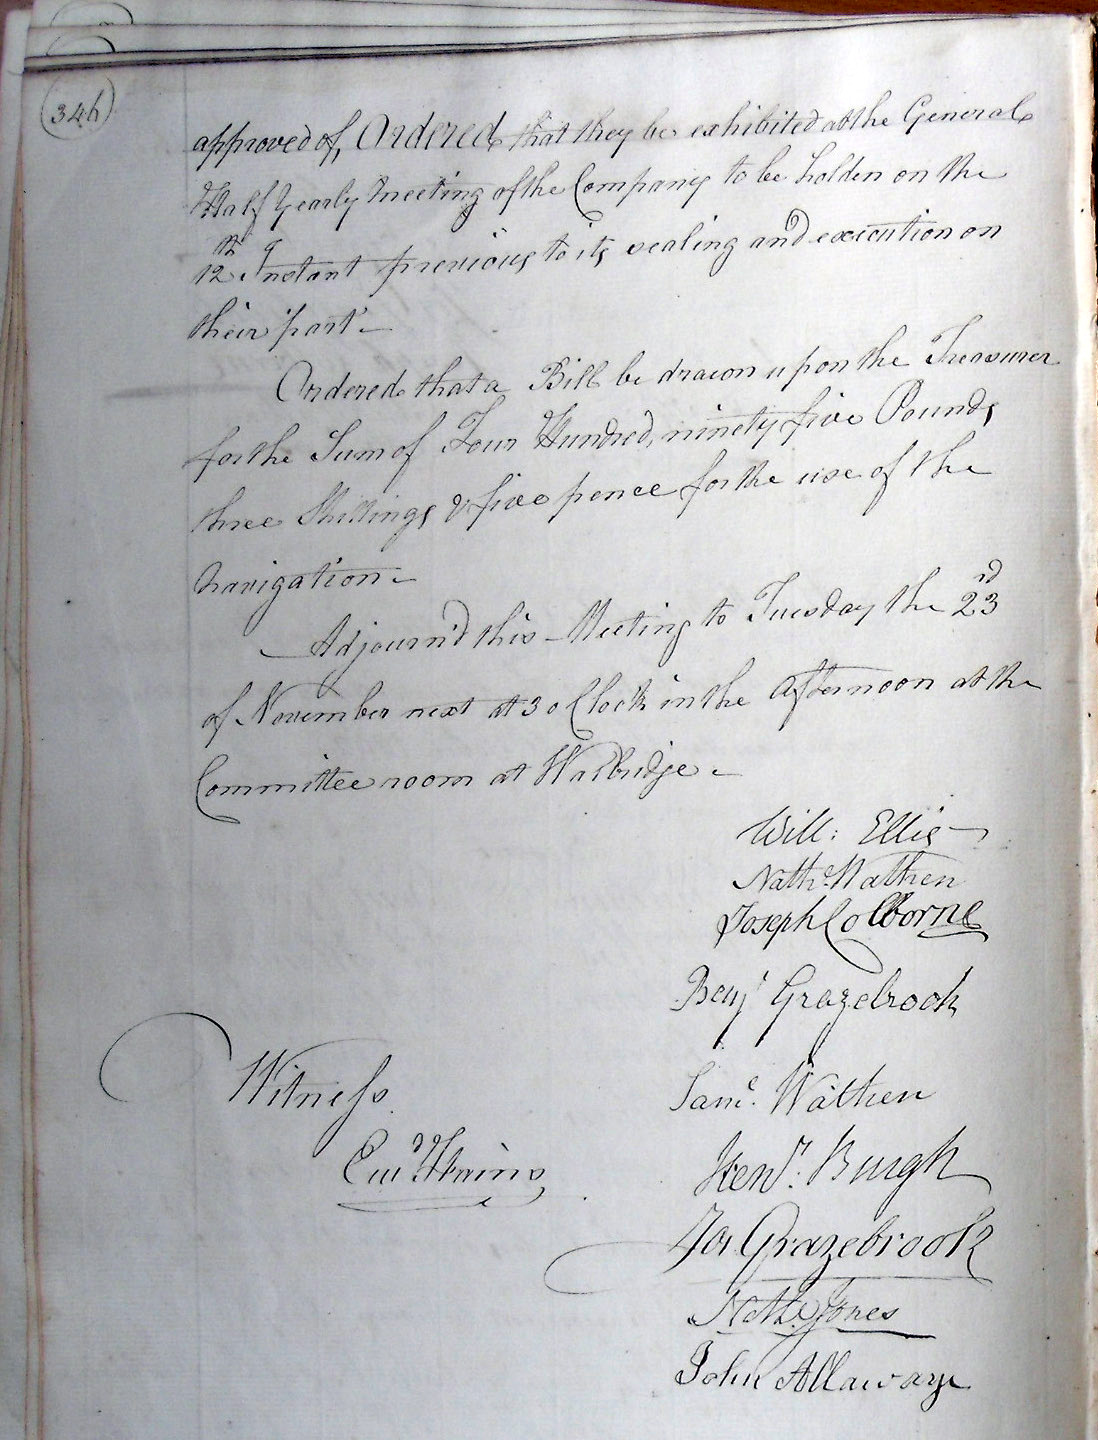 (34h)
approved of, Ordered that they be exhibited at the General
Half Yearly Meeting of the Company to be holden on the
12th Instant previous to its sealing and execution on
their part
Ordered that a Bill be drawn upon the Treasurer
for the Sum of Four Hundred, ninety five Pounds
three Shillings & five pence for the use of the
Navigation
Adjourn'd this Meeting to Tuesday the 23rd
of November next at 3 o Clock in the Afternoon at the
Committee room at Wallbridge
Will: Ellis
Nathl. Wathen
Joseph Colborne
Benj Grazebrook
Witness
Saml. Wathen
Henr. Burgh
Jos Grazebrook
Nathl Jones
John Allaway